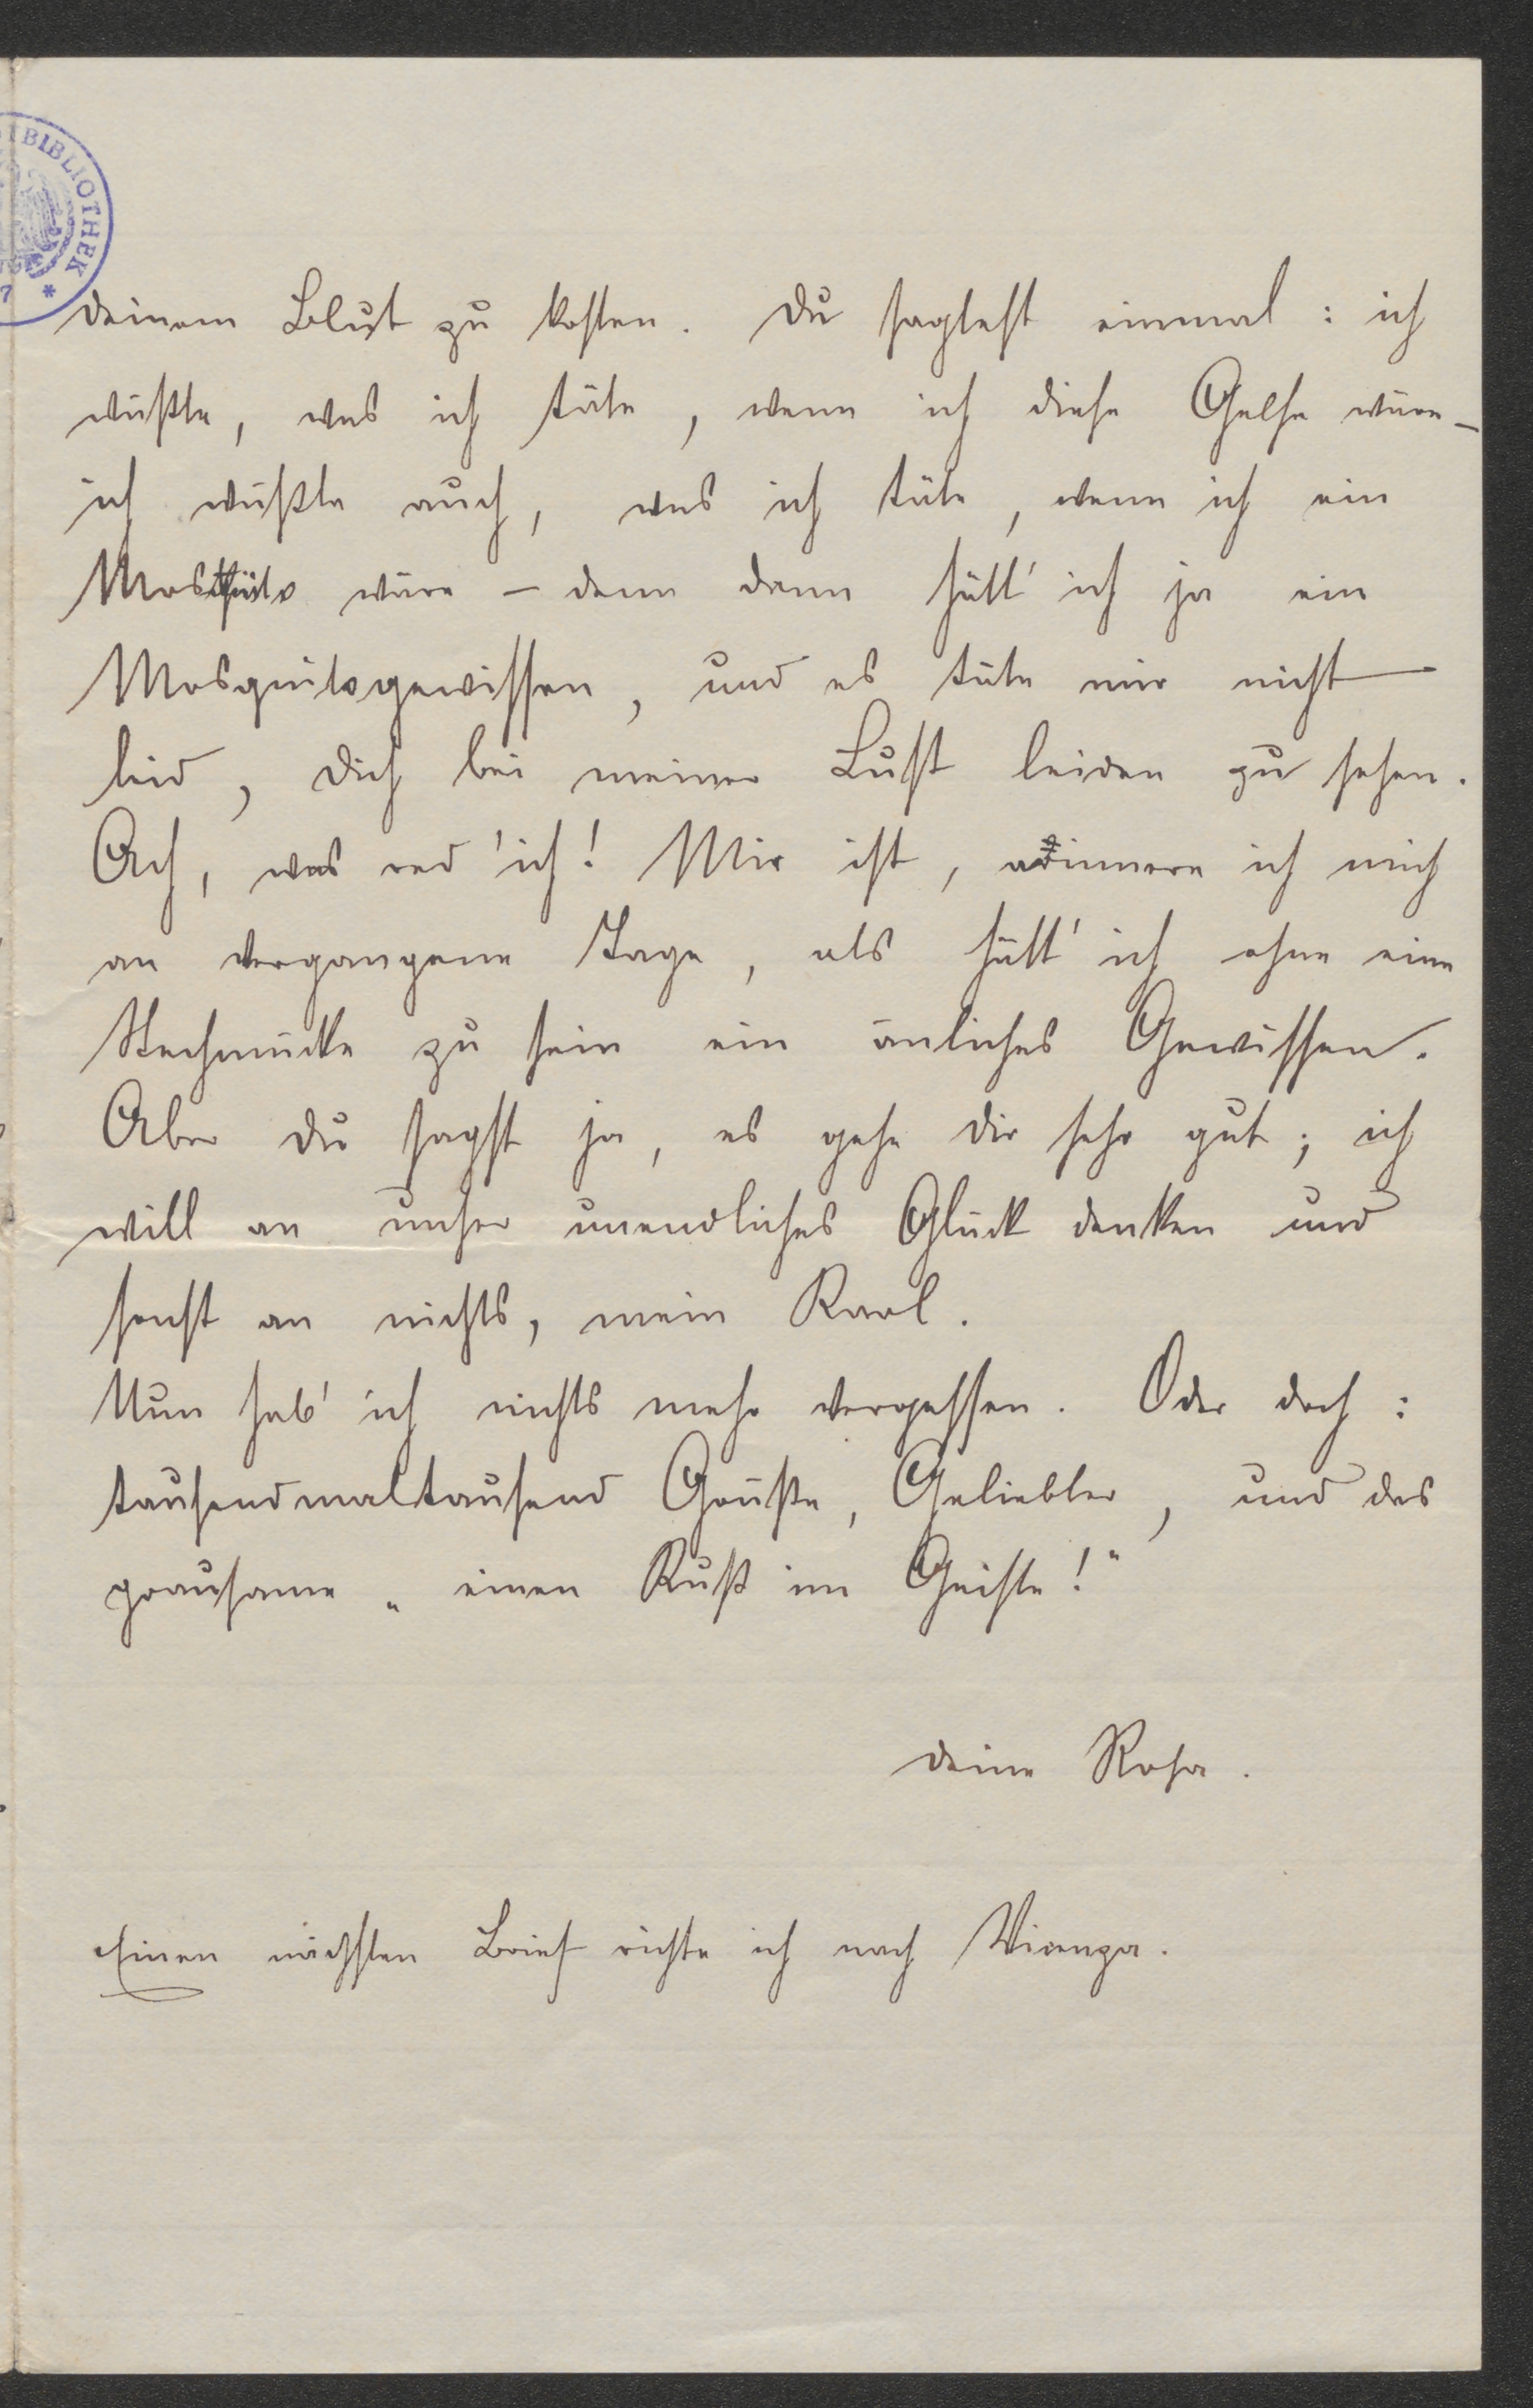 BIBLIOTHEK
7 *
deinem Blut zu kosten. Du sagtest einmal: ich
wüßte, was ich täte, wenn ich diese Gelse wäre –
ich wüßte auch, was ich täte, wenn ich ein
wäre – denn dann hätt' ich ja ein
Mosquitogewissen, und es täte mir nicht
leid, dich bei meiner Lust leiden zu sehen.
Ach, was red' ich! Mir ist, erinnere ich mich
an vergangene Tage, als hätt' ich ohne eine
Stechmücke zu sein ein änliches Gewissen.
Aber du sagst ja, es gehe dir sehr gut; ich
will an unser unendliches Glück denken und
sonst an nichts, mein Karl.
Nun hab' ich nichts mehr vergessen. Oder doch:
tausendmaltausend Grüße, Geliebter, und das
grausame „einen Kuß im Geiste!"
deine Rosa.
Einen nächsten Brief richte ich nach